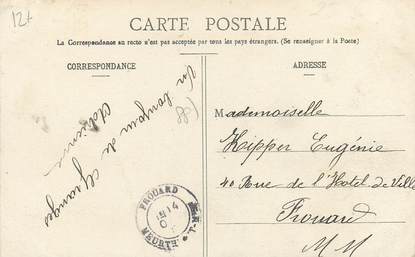 12+
CARTE POSTALE
La Correspondance au recto n'est pas acceptée par tous les pays étrangers. (Se renseigner à la Poste)
CORRESPONDANCE
Un bonjour de Granges
(88)
ADRESSE
Mademoiselle
Kipper Eugénie
40 Rue de l'Hotel de Ville
Frouard
M M
FROUARD
MEURTH